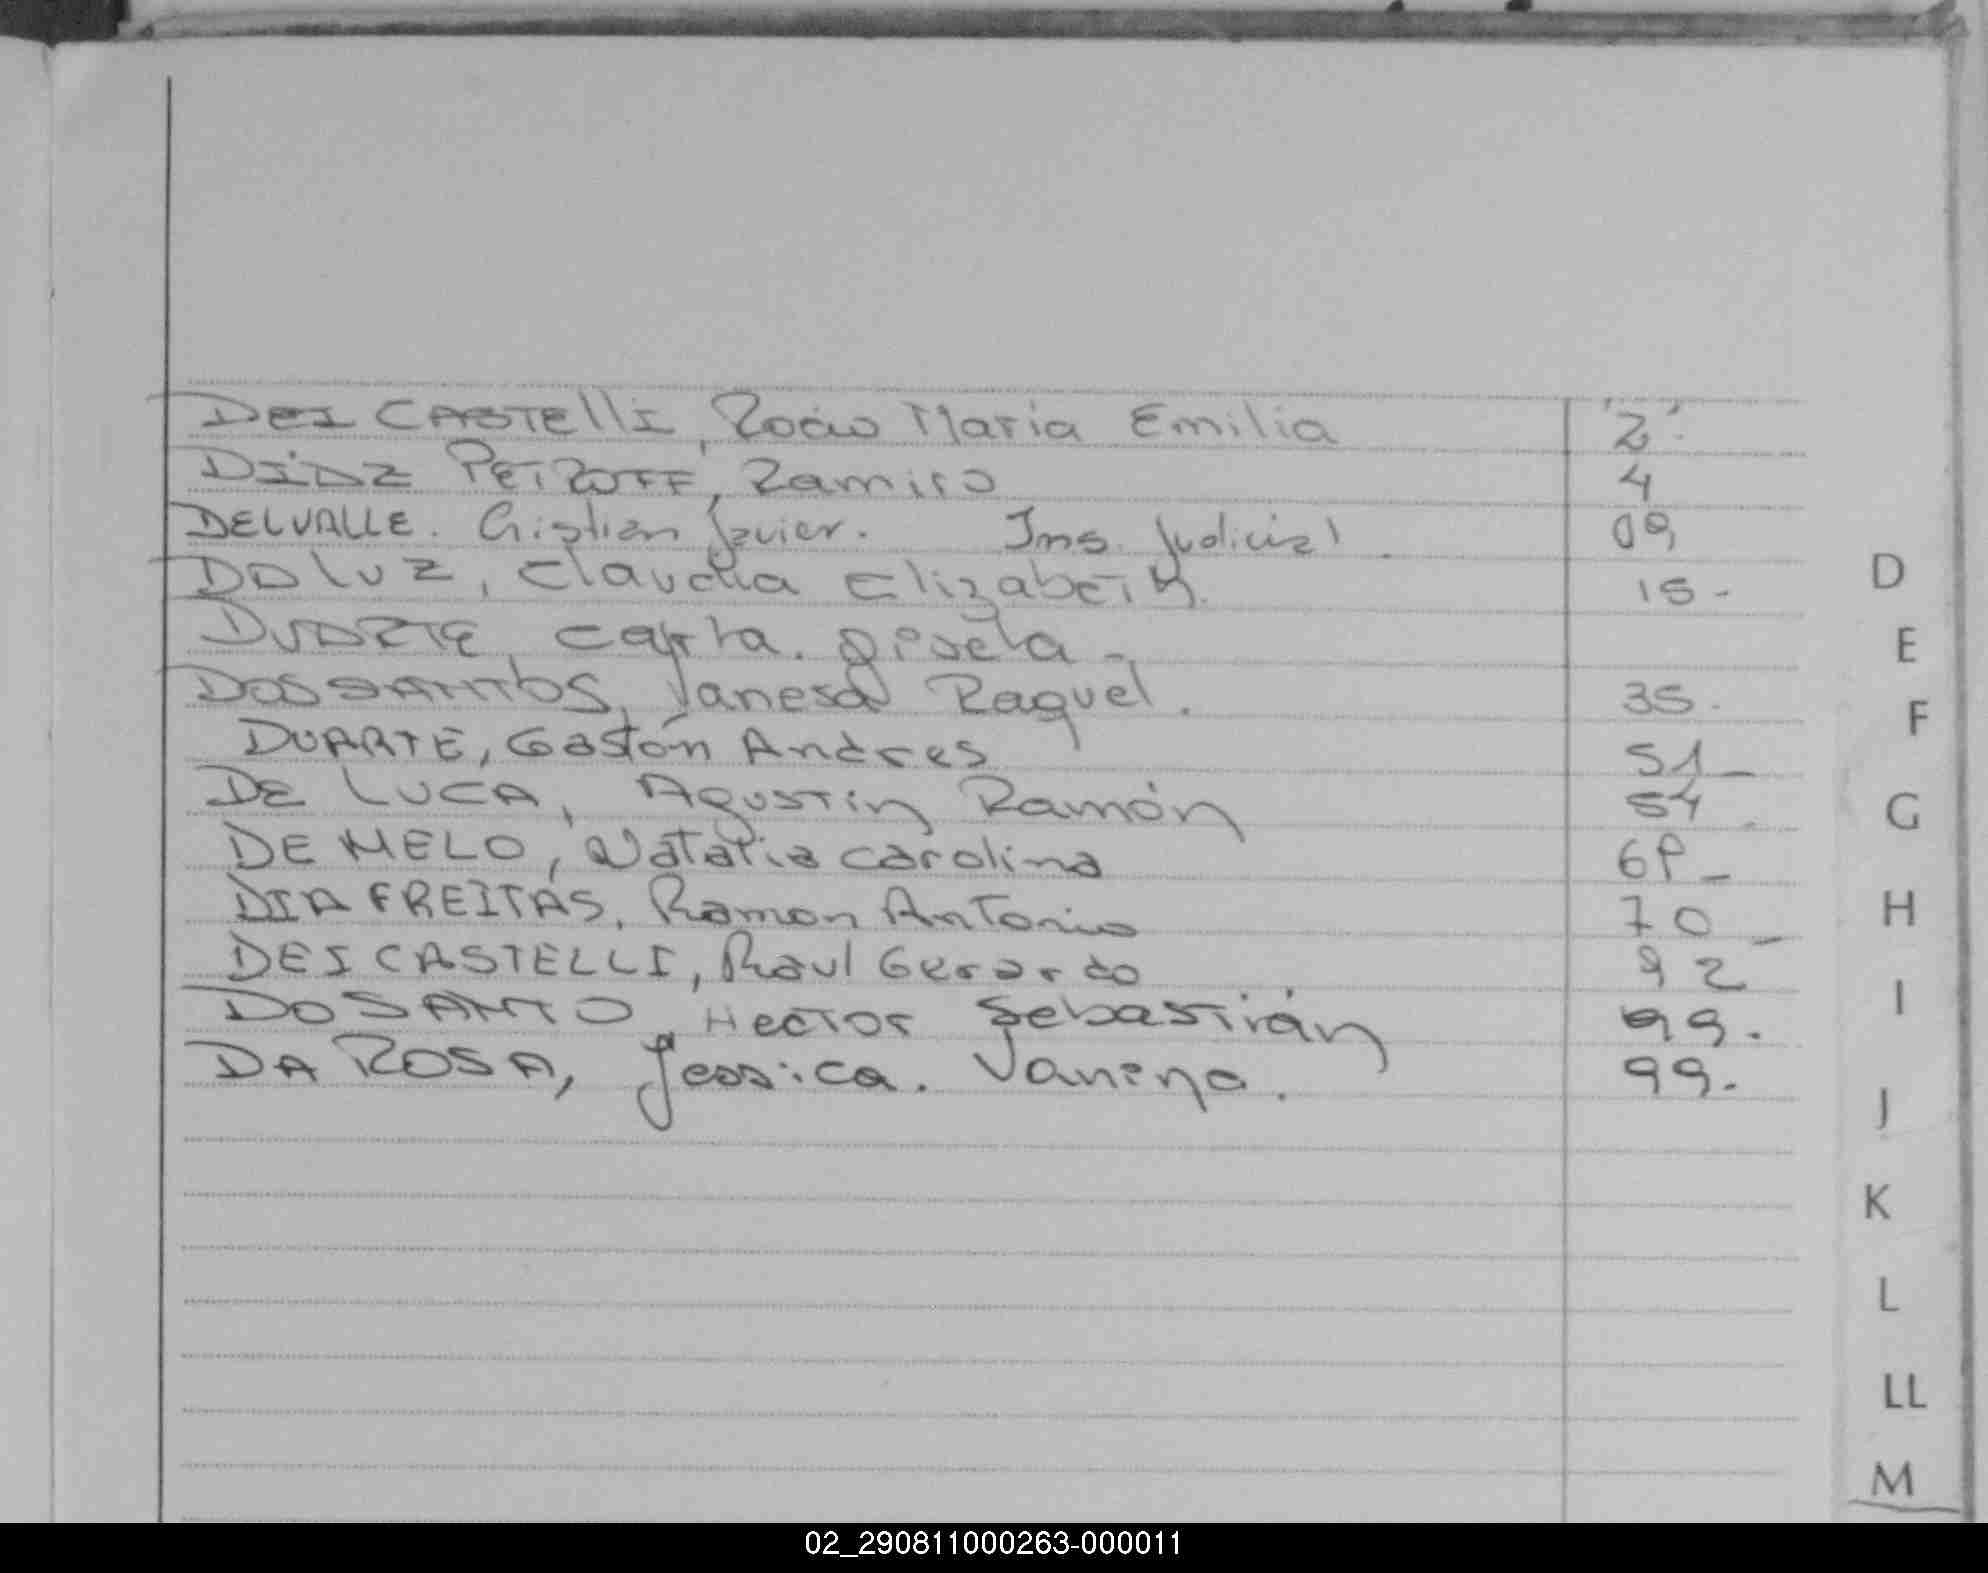 DEI CASTELLI, Rocio Maria Emilia 2
DIAZ PETROFF, Ramiro 4
DELVALLE. Cristian Javier. Ins. Judicial. 09
DA LUZ, Claudia Elizabeth. 15-
DUARTE, Carla. Gisela-
DOS SANTOS, Vanesa Raquel. 35.
DUARTE, Gastón Andres 51_
DE LUCA, Agustin Ramón 54
DE MELO, Natalia Carolina
DIA FREITAS, Ramon Antonio 70_
DEI CASTELLI, Raul Gerardo 92
DO SANTO, Hector Sebastián 99.
DA ROSA, Jessica. Vanina. 99.
D
E
F
G
H
I
J
K
L
LL
M
02_290811000263-000011